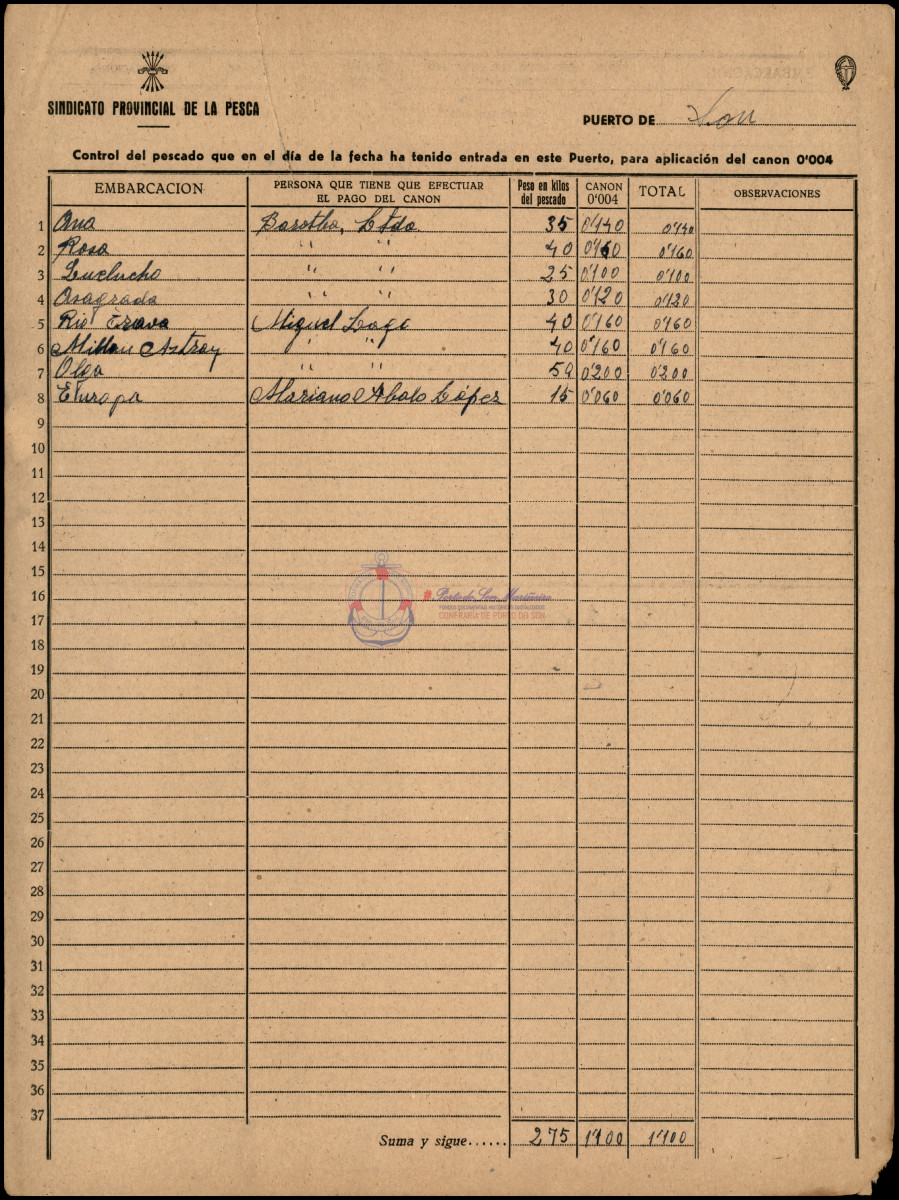 SINDICATO PROVINCIAL DE LA PESCA
PUERTO DE Son
Control del pescado que en el día de la fecha ha tenido entrada en este Puerto, para aplicación del canon 0'004
EMBARCACION PERSONA QUE TIENE QUE EFECTUAR EL PAGO DEL CANON Peso en kilos del pescado CANON 0'004 TOTAL OBSERVACIONES
1 Ana Ltda. 35 0'140 0'140
2 Rosa " " 40 0'160 0'160
3 " " 25 0'100 0'100
4 Asagrada " " 30 0'120 0'120
5 Rio Miguel Lago 40 0'160 0'160
6 Millan Astray " " 40 0'160 0'160
7 Olga " " 50 0'200 0'200
8 Europa Mariano Abalo López 15 0'060 0'060
9
10
11
12
13
14
15
16
17
18
19
20
21
22
23
24
25
26
27
28
29
30
31
32
33
34
35
36
37
Porto do Son Mariñeiro
FONDOS DOCUMENTAIS HISTÓRICOS DIXITALIZADOS
CONFRARÍA DE PORTO DO SON
Suma y sigue...... 275 1'100 1'100